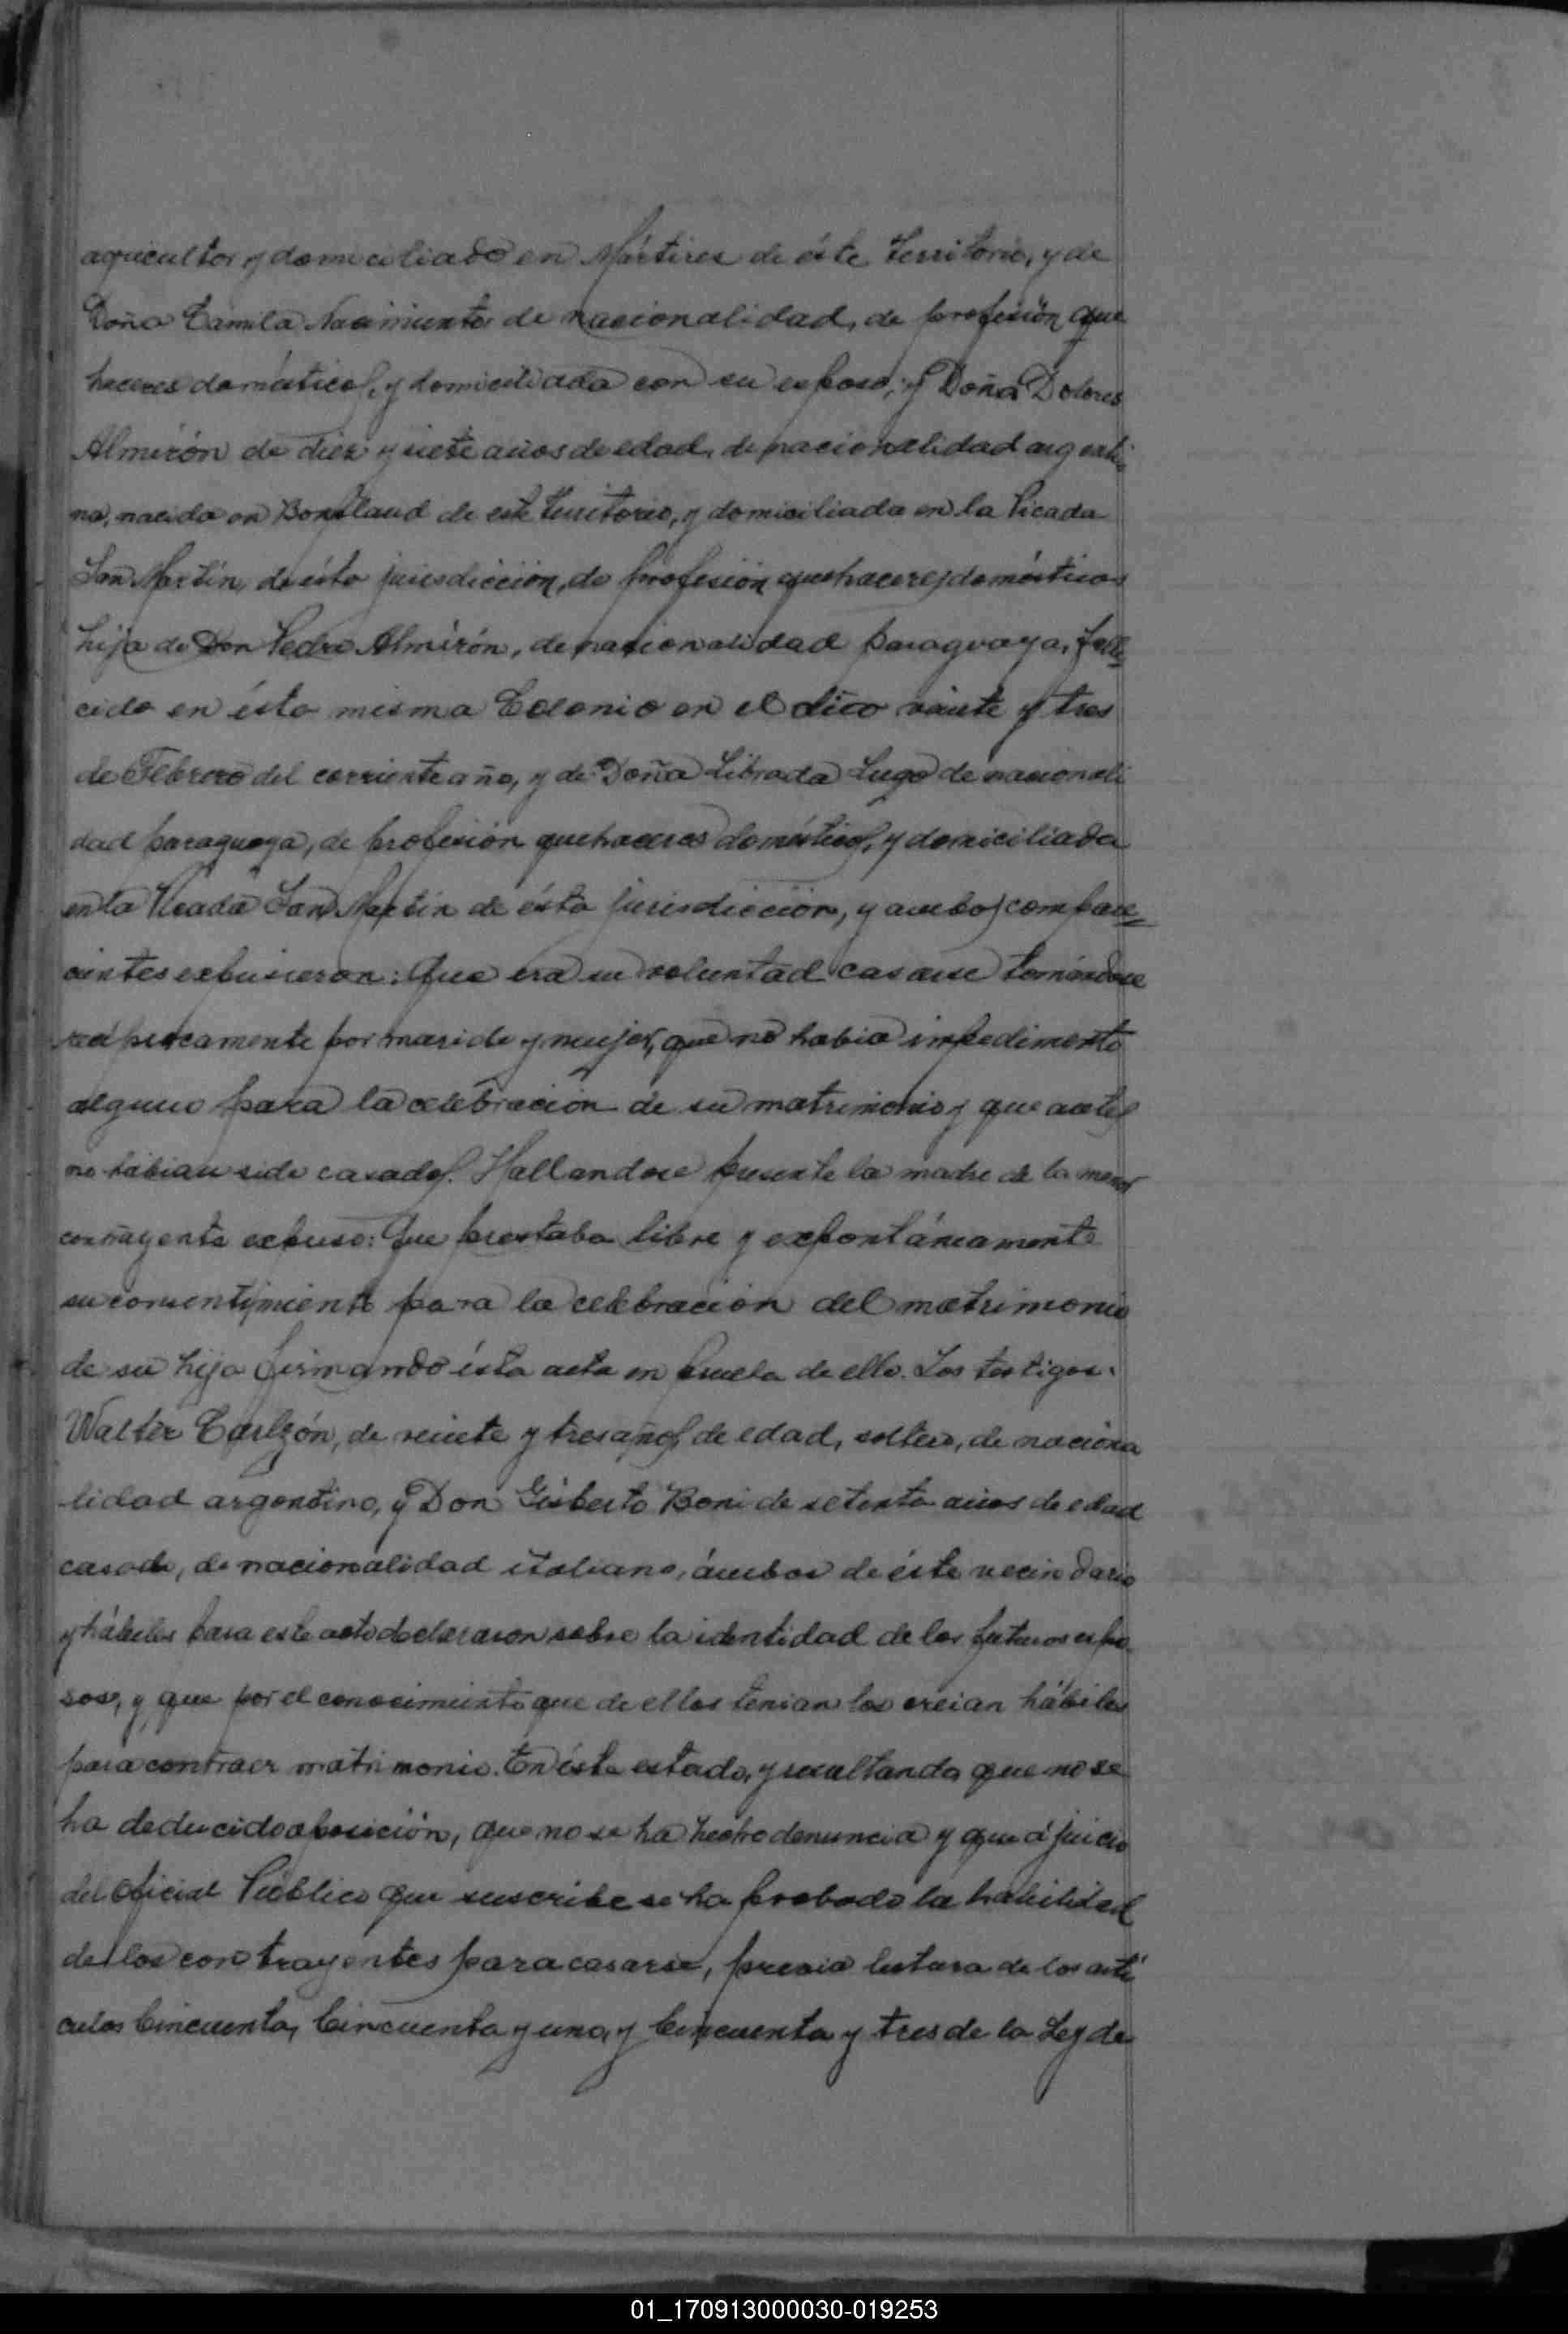 agricultor y domiciliado en Mártires de éste Territorio, y de
Doña Camila Nacimiento de nacionalidad, de profesión que
haceres domésticos, y domiciliada con su esposo; y Doña Dolores
Almirón de diez y siete años de edad, de nacionalidad argenti-
na, nacida en Bonpland de este territorio, y domiciliada en la Picada
San Martín, de ésta jurisdicción, de profesión quehaceres domésticos
hija de Don Pedro Almirón, de nacionalidad paraguaya, falle-
cido en ésta misma Colonia en el día veinte y tres
de Febrero del corriente año, y de Doña Librada Lugo de nacionali
dad paraguaya, de profesión quehaceres domésticos, y domiciliada
en la Picada San Martín de ésta jurisdicción, y ambos compare=
cientes expusieron: Que era su voluntad casarse tomándose
recíprocamente por marido y mujer, que no había impedimento
alguno para la celebración de su matrimonio y que antes
no habían sido casados. Hallandose presente la madre de la menor
contrayente expuso: Que prestaba libre y expontáneamente
su consentimiento para la celebración del matrimonio
de su hija firmando ésta acta en prueba de ello. Los testigos:
Walter Carlzón, de veinte y tres años de edad, soltero, de naciona
lidad argentino, y Don Gisberto Boni de setenta años de edad
casado, de nacionalidad italiano, ámbos de éste vecindario
y hábiles para este acto declararon sobre la identidad de los futuros espo
sos, y que por el conocimiento que de ellos tenian los creian hábiles
para contraer matrimonio. En éste estado, y resultando que no se
ha deducido oposición, que no se ha hecho denuncia y que á juicio
del Oficial Público que suscribe se ha probado la habilidad
de los contrayentes para casarse, previa lectura de los artí
culos Cincuenta, Cincuenta y uno, y Cincuenta y tres de la Ley de
01_170913000030-019253